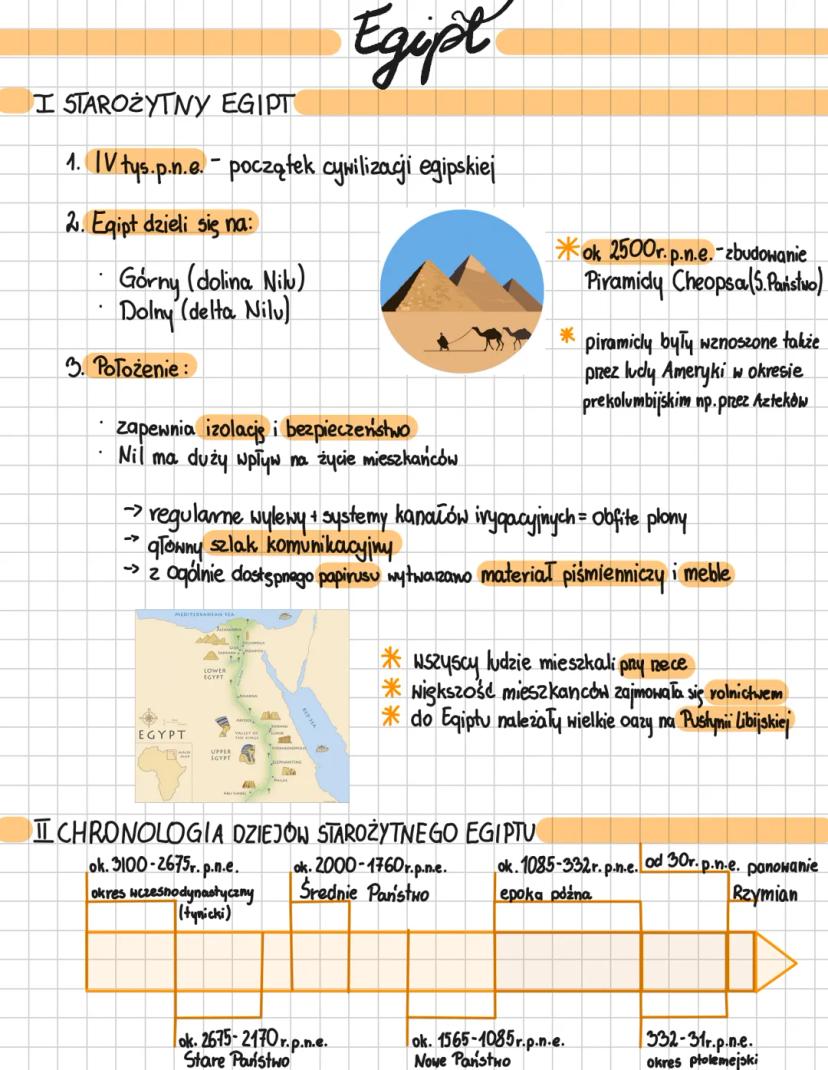 Egipt
I STAROŻYTNY EGIPT
1. IV tys.p.n.e. - początek cywilizacji egipskiej
2. Egipt dzieli się na:
· Górny (dolina Nilu)
· Dolny (delta Nilu)
* ok 2500r.p.n.e. - zbudowanie
Piramidy Cheopsa (S.Państwo)
* piramidy były wznoszone także
przez ludy Ameryki w okresie
prekolumbijskim np. przez Azteków
3. Położenie:
· zapewnia izolację i bezpieczeństwo
· Nil ma duży wpływ na życie mieszkańców
-> regularne wylewy + systemy kanałów irygacyjnych = obfite plony
-> główny szlak komunikacyjny
-> z ogólnie dostępnego papirusu wytwarzano materiał piśmienniczy i meble
MEDITERRANEAN SEA
LOWER
EGYPT
RED SEA
VALLEY OF
THE KINGS
EGYPT
UPPER
EGYPT
ABU SIMBEL
* wszyscy ludzie mieszkali przy rzece
* większość mieszkańców zajmowała się rolnictwem
* do Egiptu należały wielkie oazy na Pustynii Libijskiej
II CHRONOLOGIA DZIEJÓW STAROŻYTNEGO EGIPTU
ok. 3100-2675r. p.n.e.
okres wczesnodynastyczny
(tynicki)
ok. 2000-1760r.p.n.e.
Średnie Państwo
ok. 1085-332r. p.n.e.
epoka późna
od 30r. p.n.e. panowanie
Rzymian
ok. 2675-2170r.p.n.e.
Stare Państwo
ok. 1565-1085r.p.n.e.
Nowe Państwo
332-31r.p.n.e.
okres ptolemejski